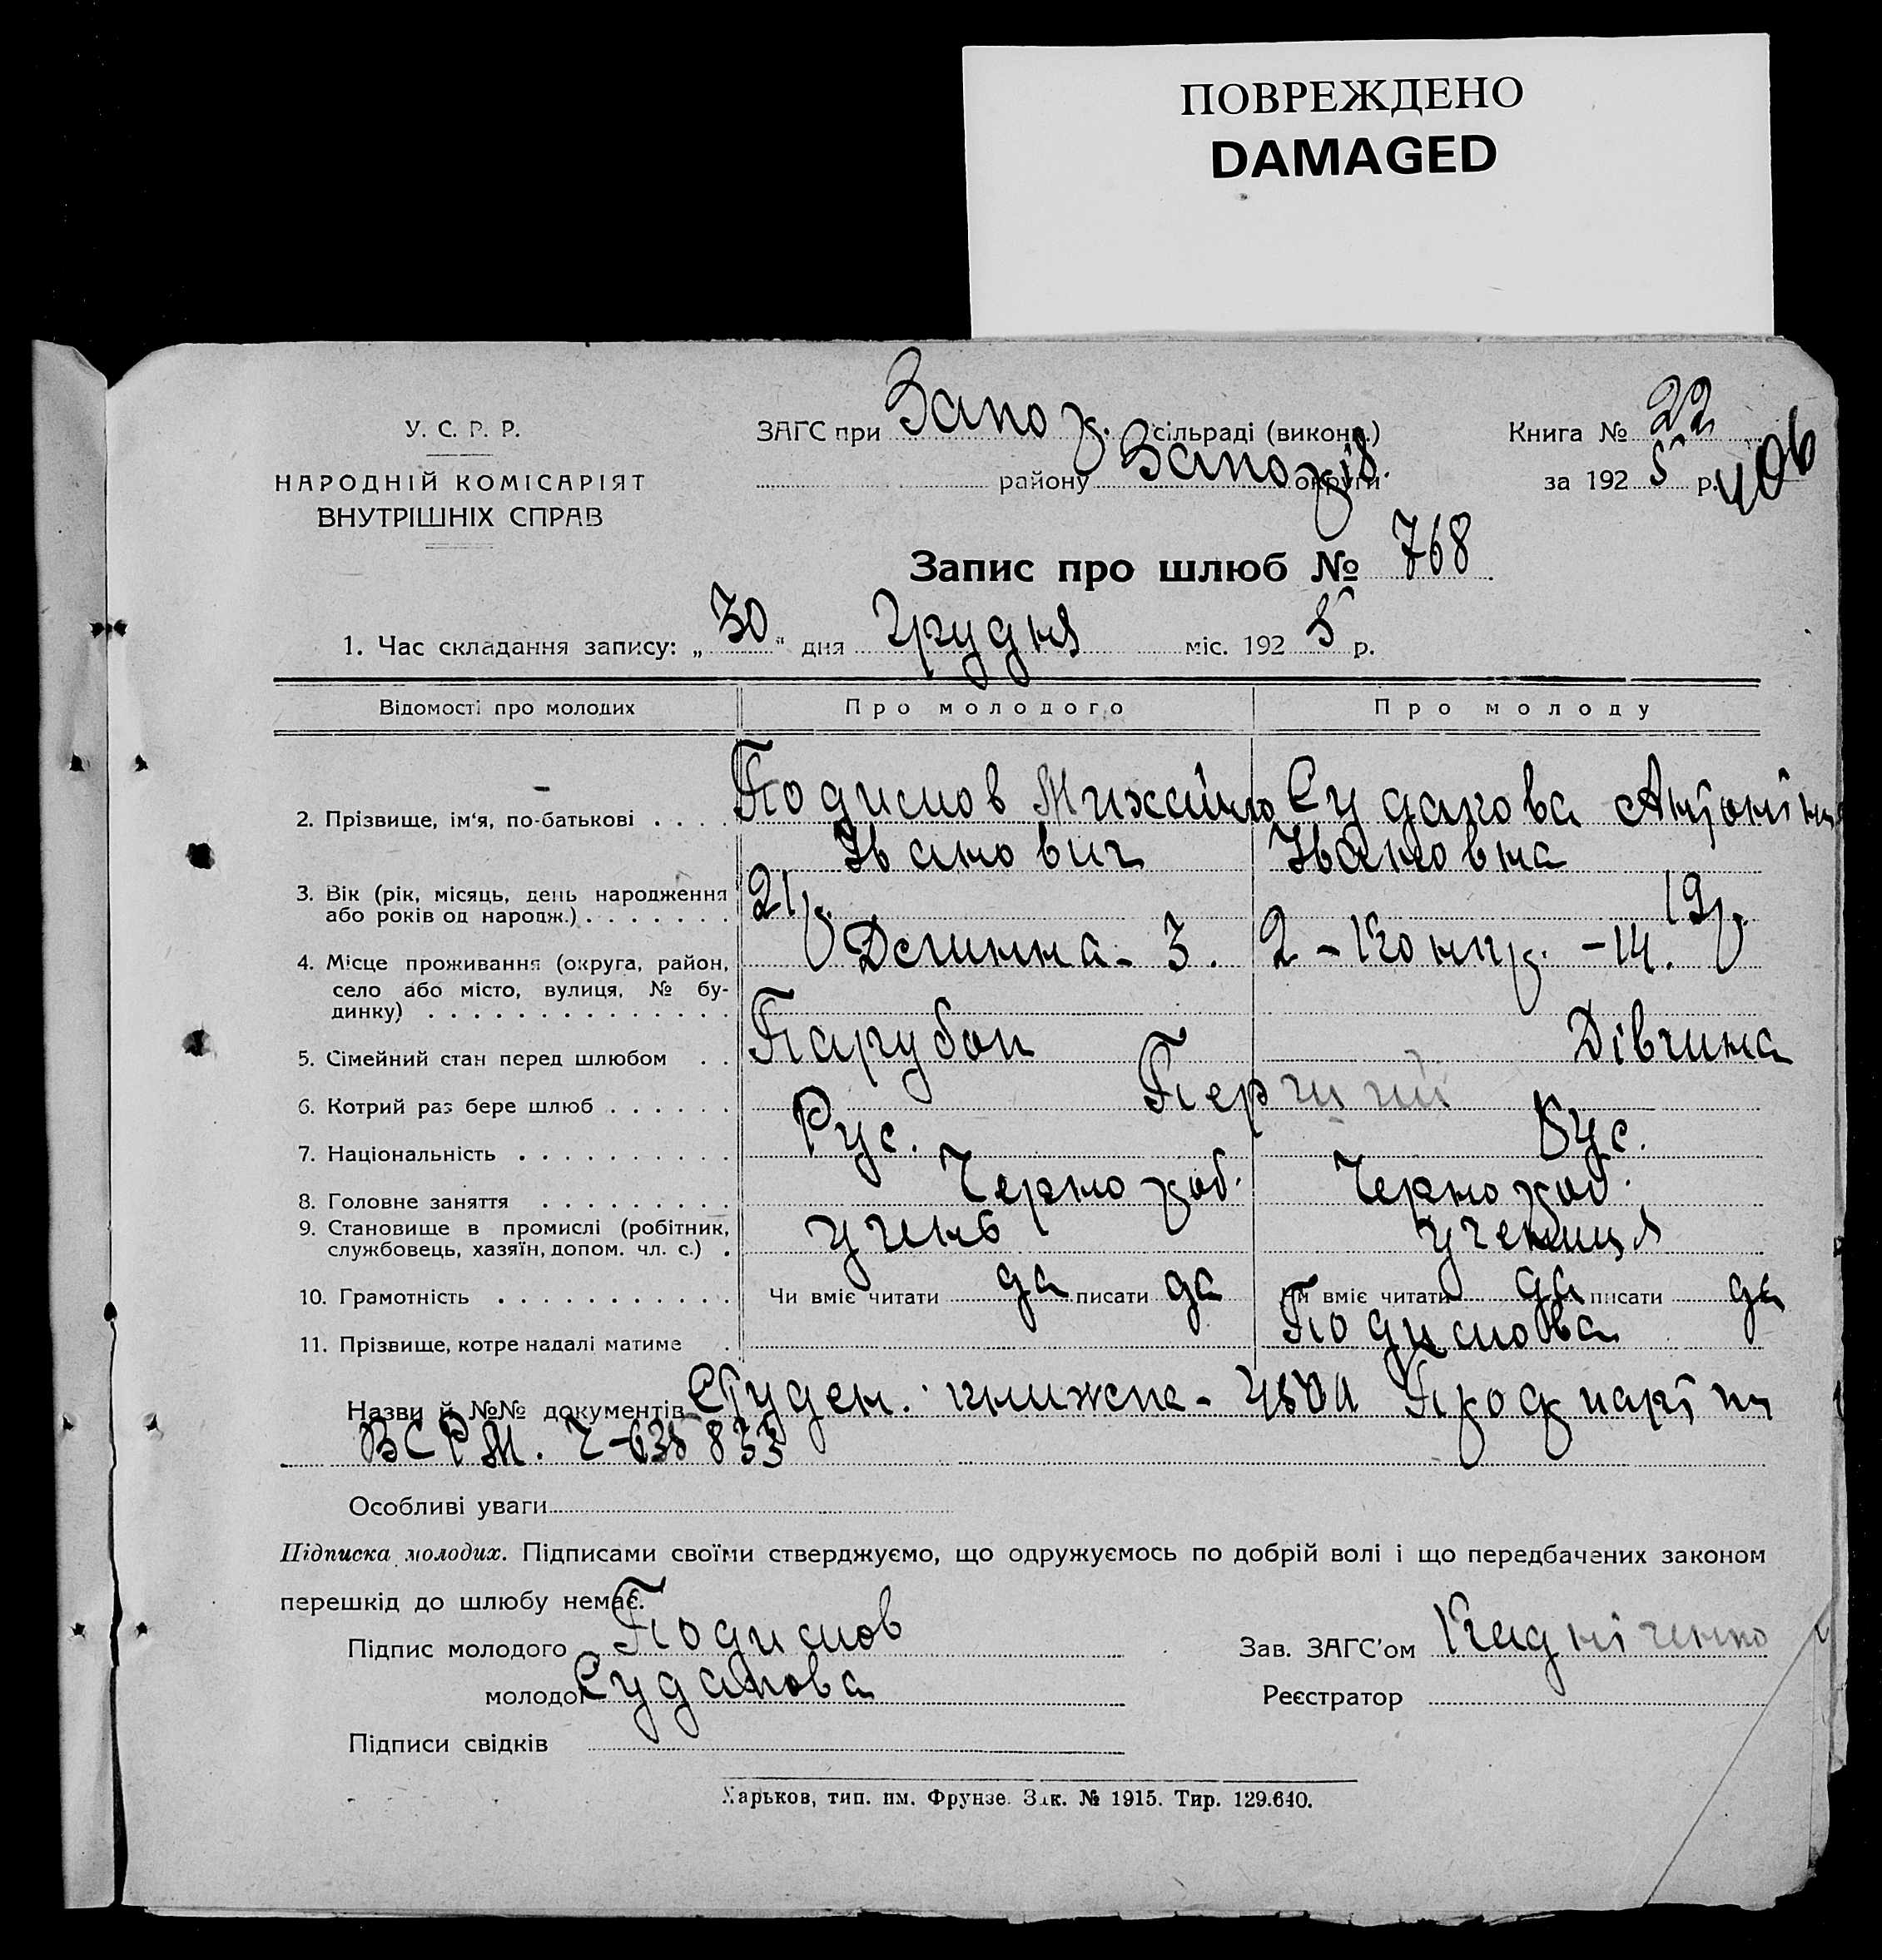 ПОВРЕЖДЕНО
DAMAGED
У. С. Р. Р.
НАРОДНІЙ КОМІСАРІЯТ
ВНУТРІШНІХ СПРАВ
ЗАГС при Запоріз. сільраді (викон.)
району Запорізь. округи
Книга № 22
за 1925 р.
406
Запис про шлюб № 768
1. Час складання запису: „30" дня Грудня міс. 1925 р.
Відомості про молодих Про молодого Про молоду
2. Прізвище, ім'я, по-батькові . . . . Подимов Михайло Судакова Антоніна
Іванович Івановна
3. Вік (рік, місяць, день народження
або років од народж.) . . . . . . . 21 р. 19 р.
4. Місце проживання (округа, район,
село або місто, вулиця, № бу-
динку) . . . . . . . . . . . . . . - 3. 2 - - 14.
5. Сімейний стан перед шлюбом . . Парубок Дівчина
6. Котрий раз бере шлюб . . . . . . Перший
7. Національність . . . . . . . . . . Рус. Рус.
8. Головне заняття . . . . . . . . . Чорнороб. Чорнороб.
9. Становище в промислі (робітник,
службовець, хазяїн, допом. чл. с.) . учень учениця
10. Грамотність . . . . . . . . . . . Чи вміє читати да писати да Чи вміє читати да писати да
11. Прізвище, котре надалі матиме . Подимова
Назви й №№ документів Студен. книжка - Проф
ВСРМ.
Особливі уваги
Підписка молодих. Підписами своїми стверджуємо, що одружуємось по добрій волі і що передбачених законом
перешкід до шлюбу немає.
Підпис молодого Подимов
молодої Судакова
Зав. ЗАГС'ом
Реєстратор
Підписи свідків
Харьков, тип. им. Фрунзе. Зак. № 1915. Тир. 129.640.